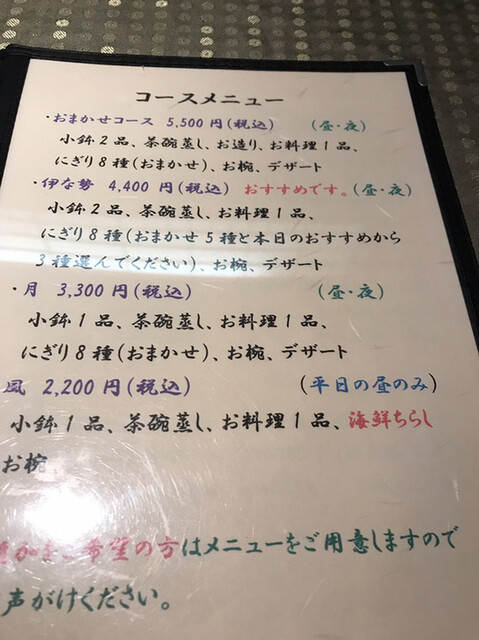 コースメニュー
・おまかせコース 5,500円(税込) (昼・夜)
小鉢2品、茶碗蒸し、お造り、お料理1品、
にぎり8種(おまかせ)、お椀、デザート
・伊な勢 4,400円(税込) おすすめです。(昼・夜)
小鉢2品、茶碗蒸し、お料理1品、
にぎり8種(おまかせ5種と本日のおすすめから
3種選んでください)、お椀、デザート
・月 3,300円(税込) (昼・夜)
小鉢1品、茶碗蒸し、お料理1品、
にぎり8種(おまかせ)、お椀、デザート
風 2,200円(税込) (平日の昼のみ)
小鉢1品、茶碗蒸し、お料理1品、海鮮ちらし
お椀
加をご希望の方はメニューをご用意しますので
声がけください。